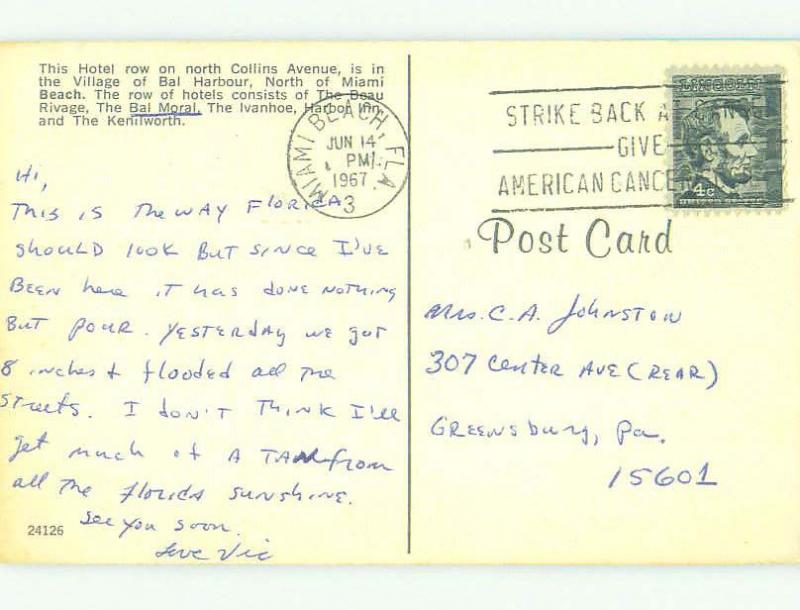 This Hotel row on north Collins Avenue, is in
the Village of Bal Harbour, North of Miami
Beach. The row of hotels consists of The Beau
Rivage, The Bal Moral, The Ivanhoe, Harbor Inn,
and The Kenilworth.
MIAMI BEACH, FLA.
JUN 14
PM
1967
3
Hi,
This is the way Florida
should look But since I've
Been here it has done nothing
But pour. Yesterday we got
8 inches & flooded all the
streets. I don't think I'll
get much of a tan from
all the florida sunshine.
See you soon.
Love Vic
24126
STRIKE BACK A
GIVE
AMERICAN CANCE
LINCOLN
4c
Post Card
Mrs. C. A. Johnston
307 Center Ave (Rear)
Greensburg, Pa.
15601